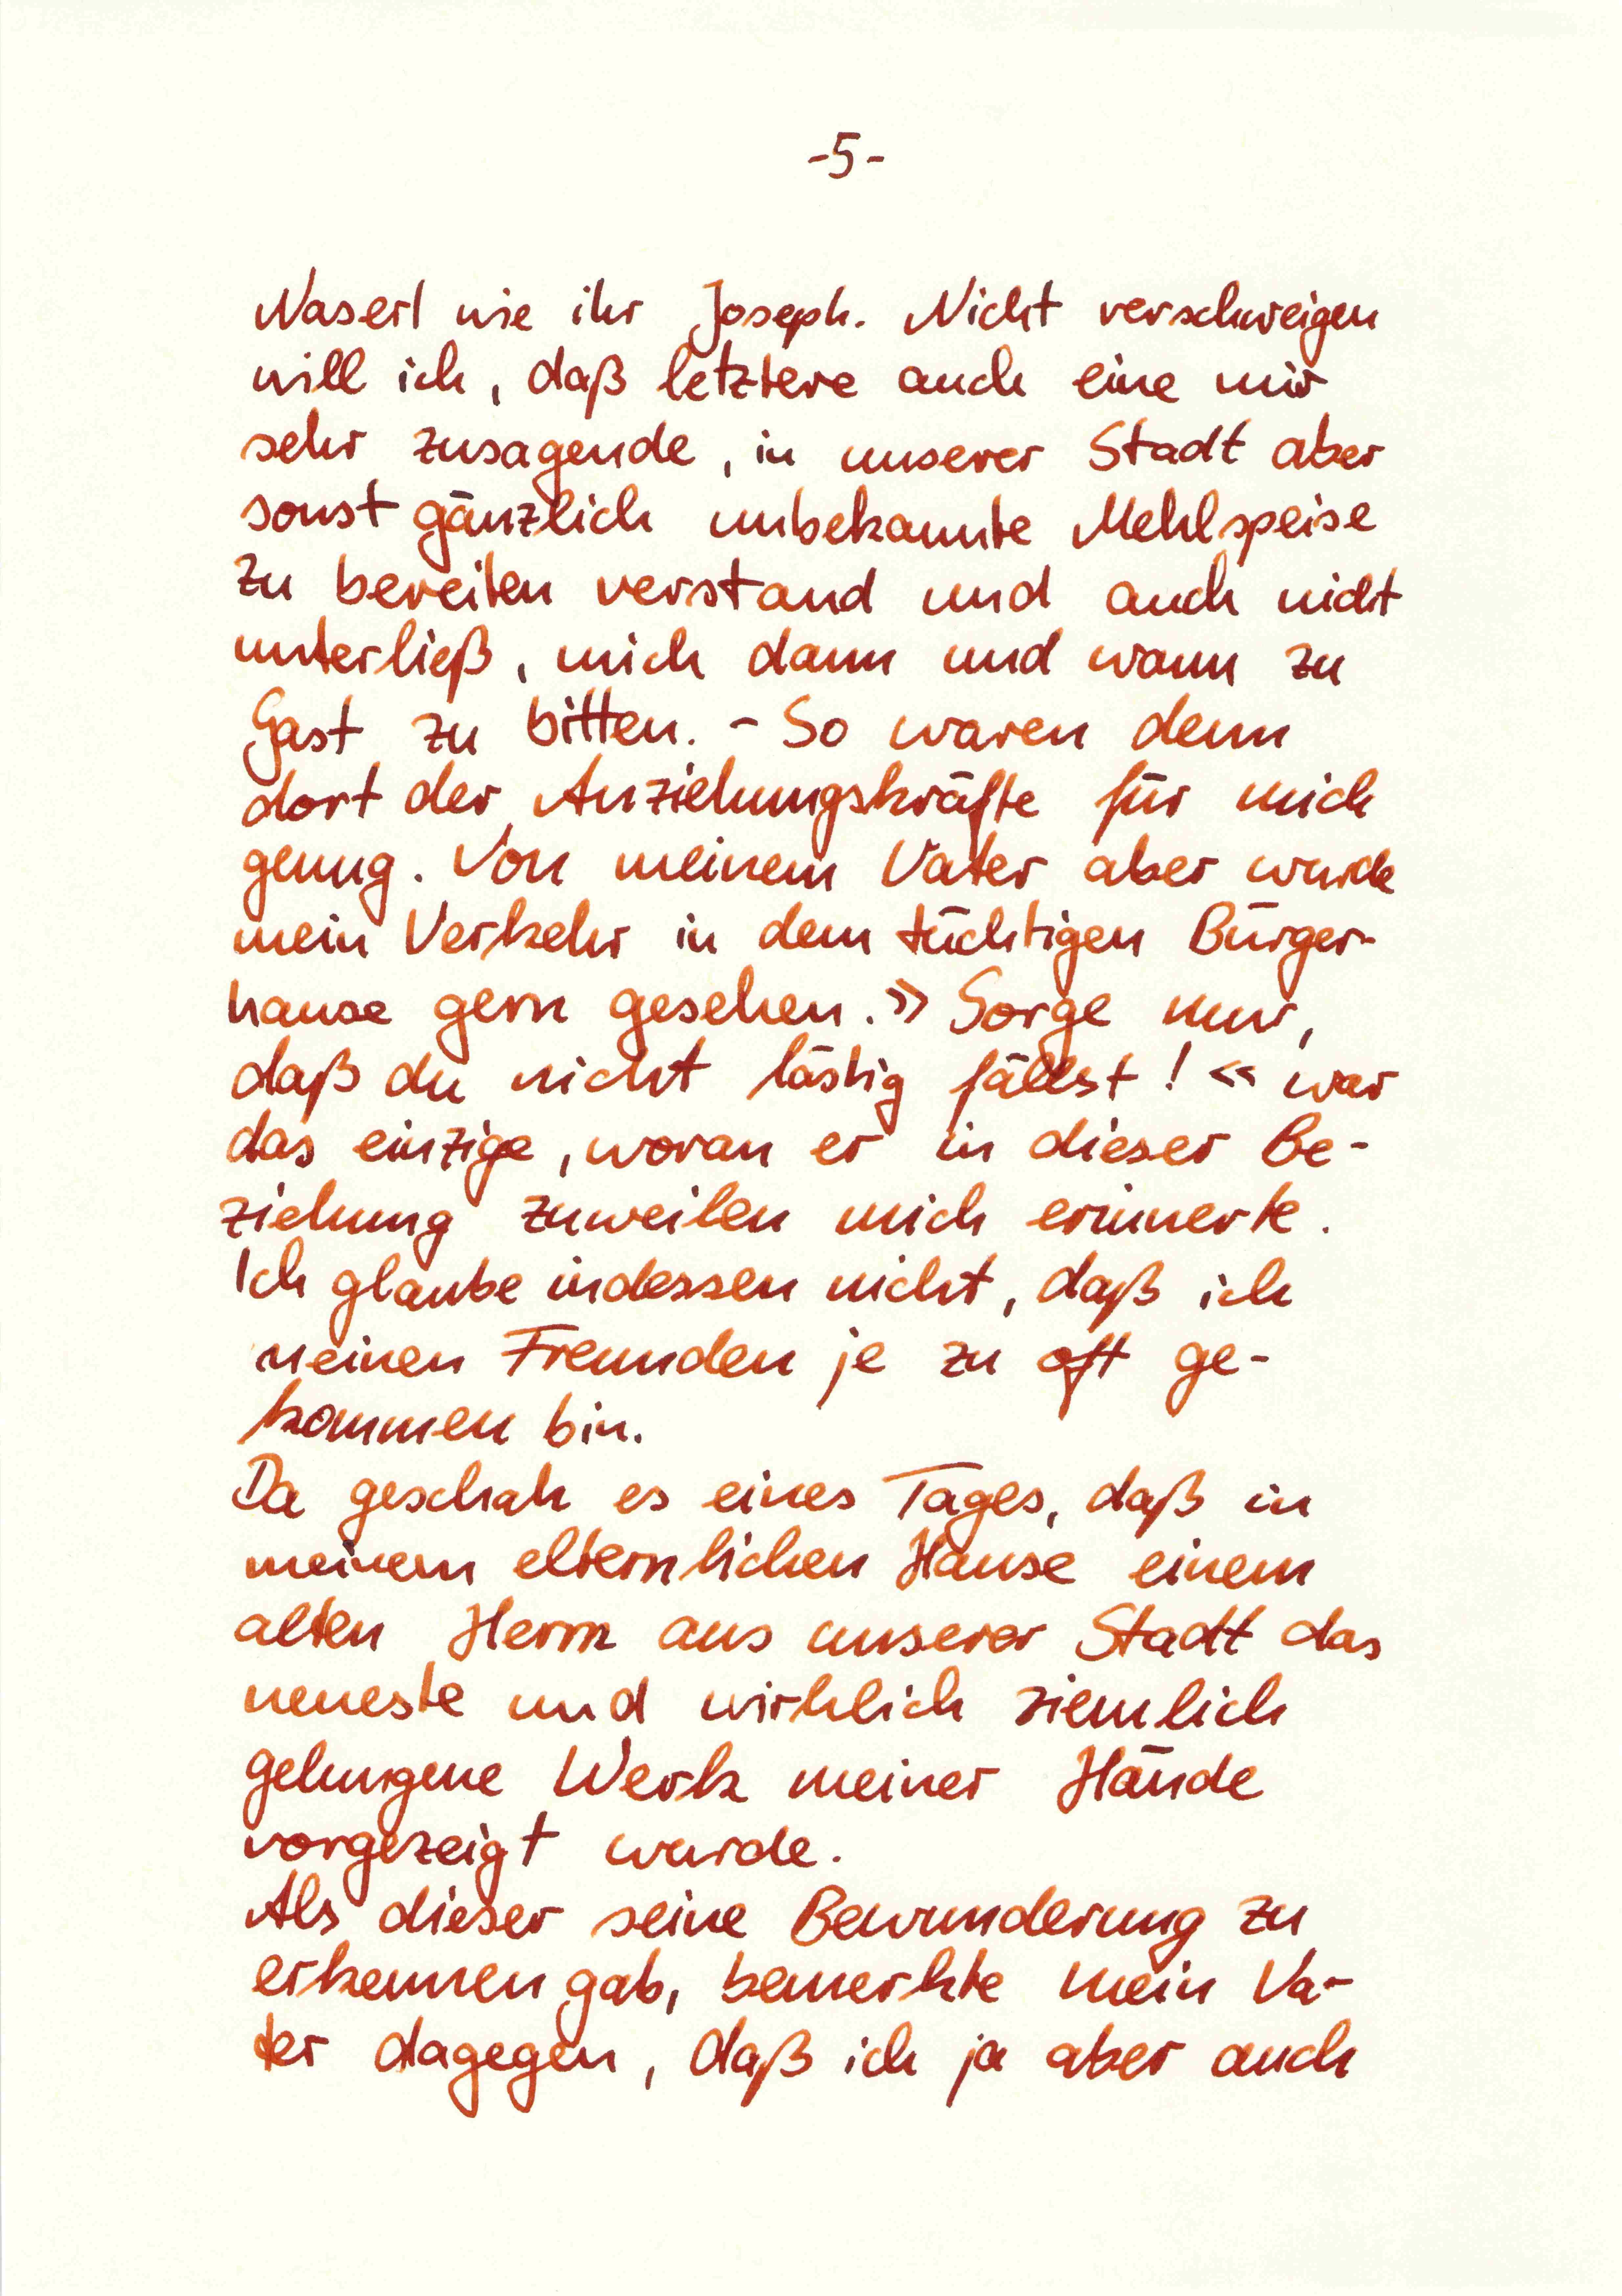 -5-
Naserl wie ihr Joseph. Nicht verschweigen
will ich, daß letztere auch eine mir
sehr zusagende, in unserer Stadt aber
sonst gänzlich unbekannte Mehlspeise
zu bereiten verstand und auch nicht
unterließ, mich dann und wann zu
Gast zu bitten. - So waren denn
dort der Anziehungskräfte für mich
genug. Von meinem Vater aber wurde
mein Verkehr in dem tüchtigen Bürger-
hause gern gesehen. »Sorge nur,
daß du nicht lästig fällst!« war
das einzige, woran er in dieser Be-
ziehung zuweilen mich erinnerte.
Ich glaube indessen nicht, daß ich
meinen Freunden je zu oft ge-
kommen bin.
Da geschah es eines Tages, daß in
meinem elternlichen Hause einem
alten Herrn aus unserer Stadt das
neueste und wirklich ziemlich
gelungene Werk meiner Hände
vorgezeigt wurde.
Als dieser seine Bewunderung zu
erkennen gab, bemerkte mein Va-
ter dagegen, daß ich ja aber auch